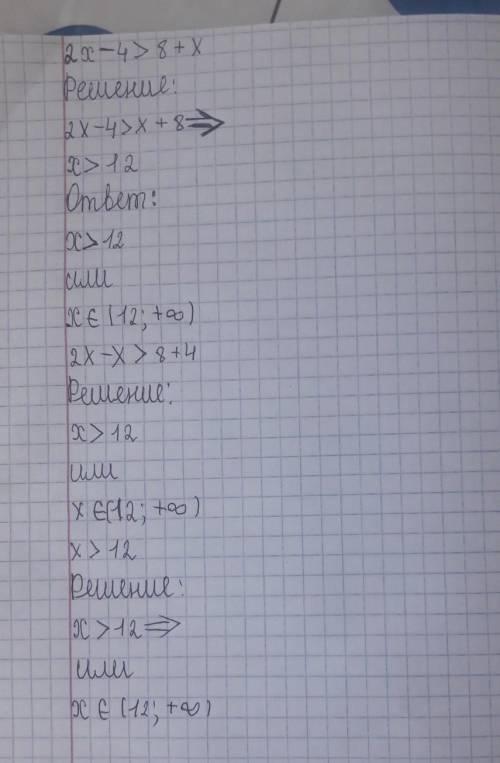 2x-4>8+x
Решение:
2x-4>x+8⇒
x>12
Ответ:
x>12
или
x∈(12;+∞)
2x-x>8+4
Решение:
x>12
или
x∈(12;+∞)
x>12
Решение:
x>12⇒
или
x∈(12;+∞)